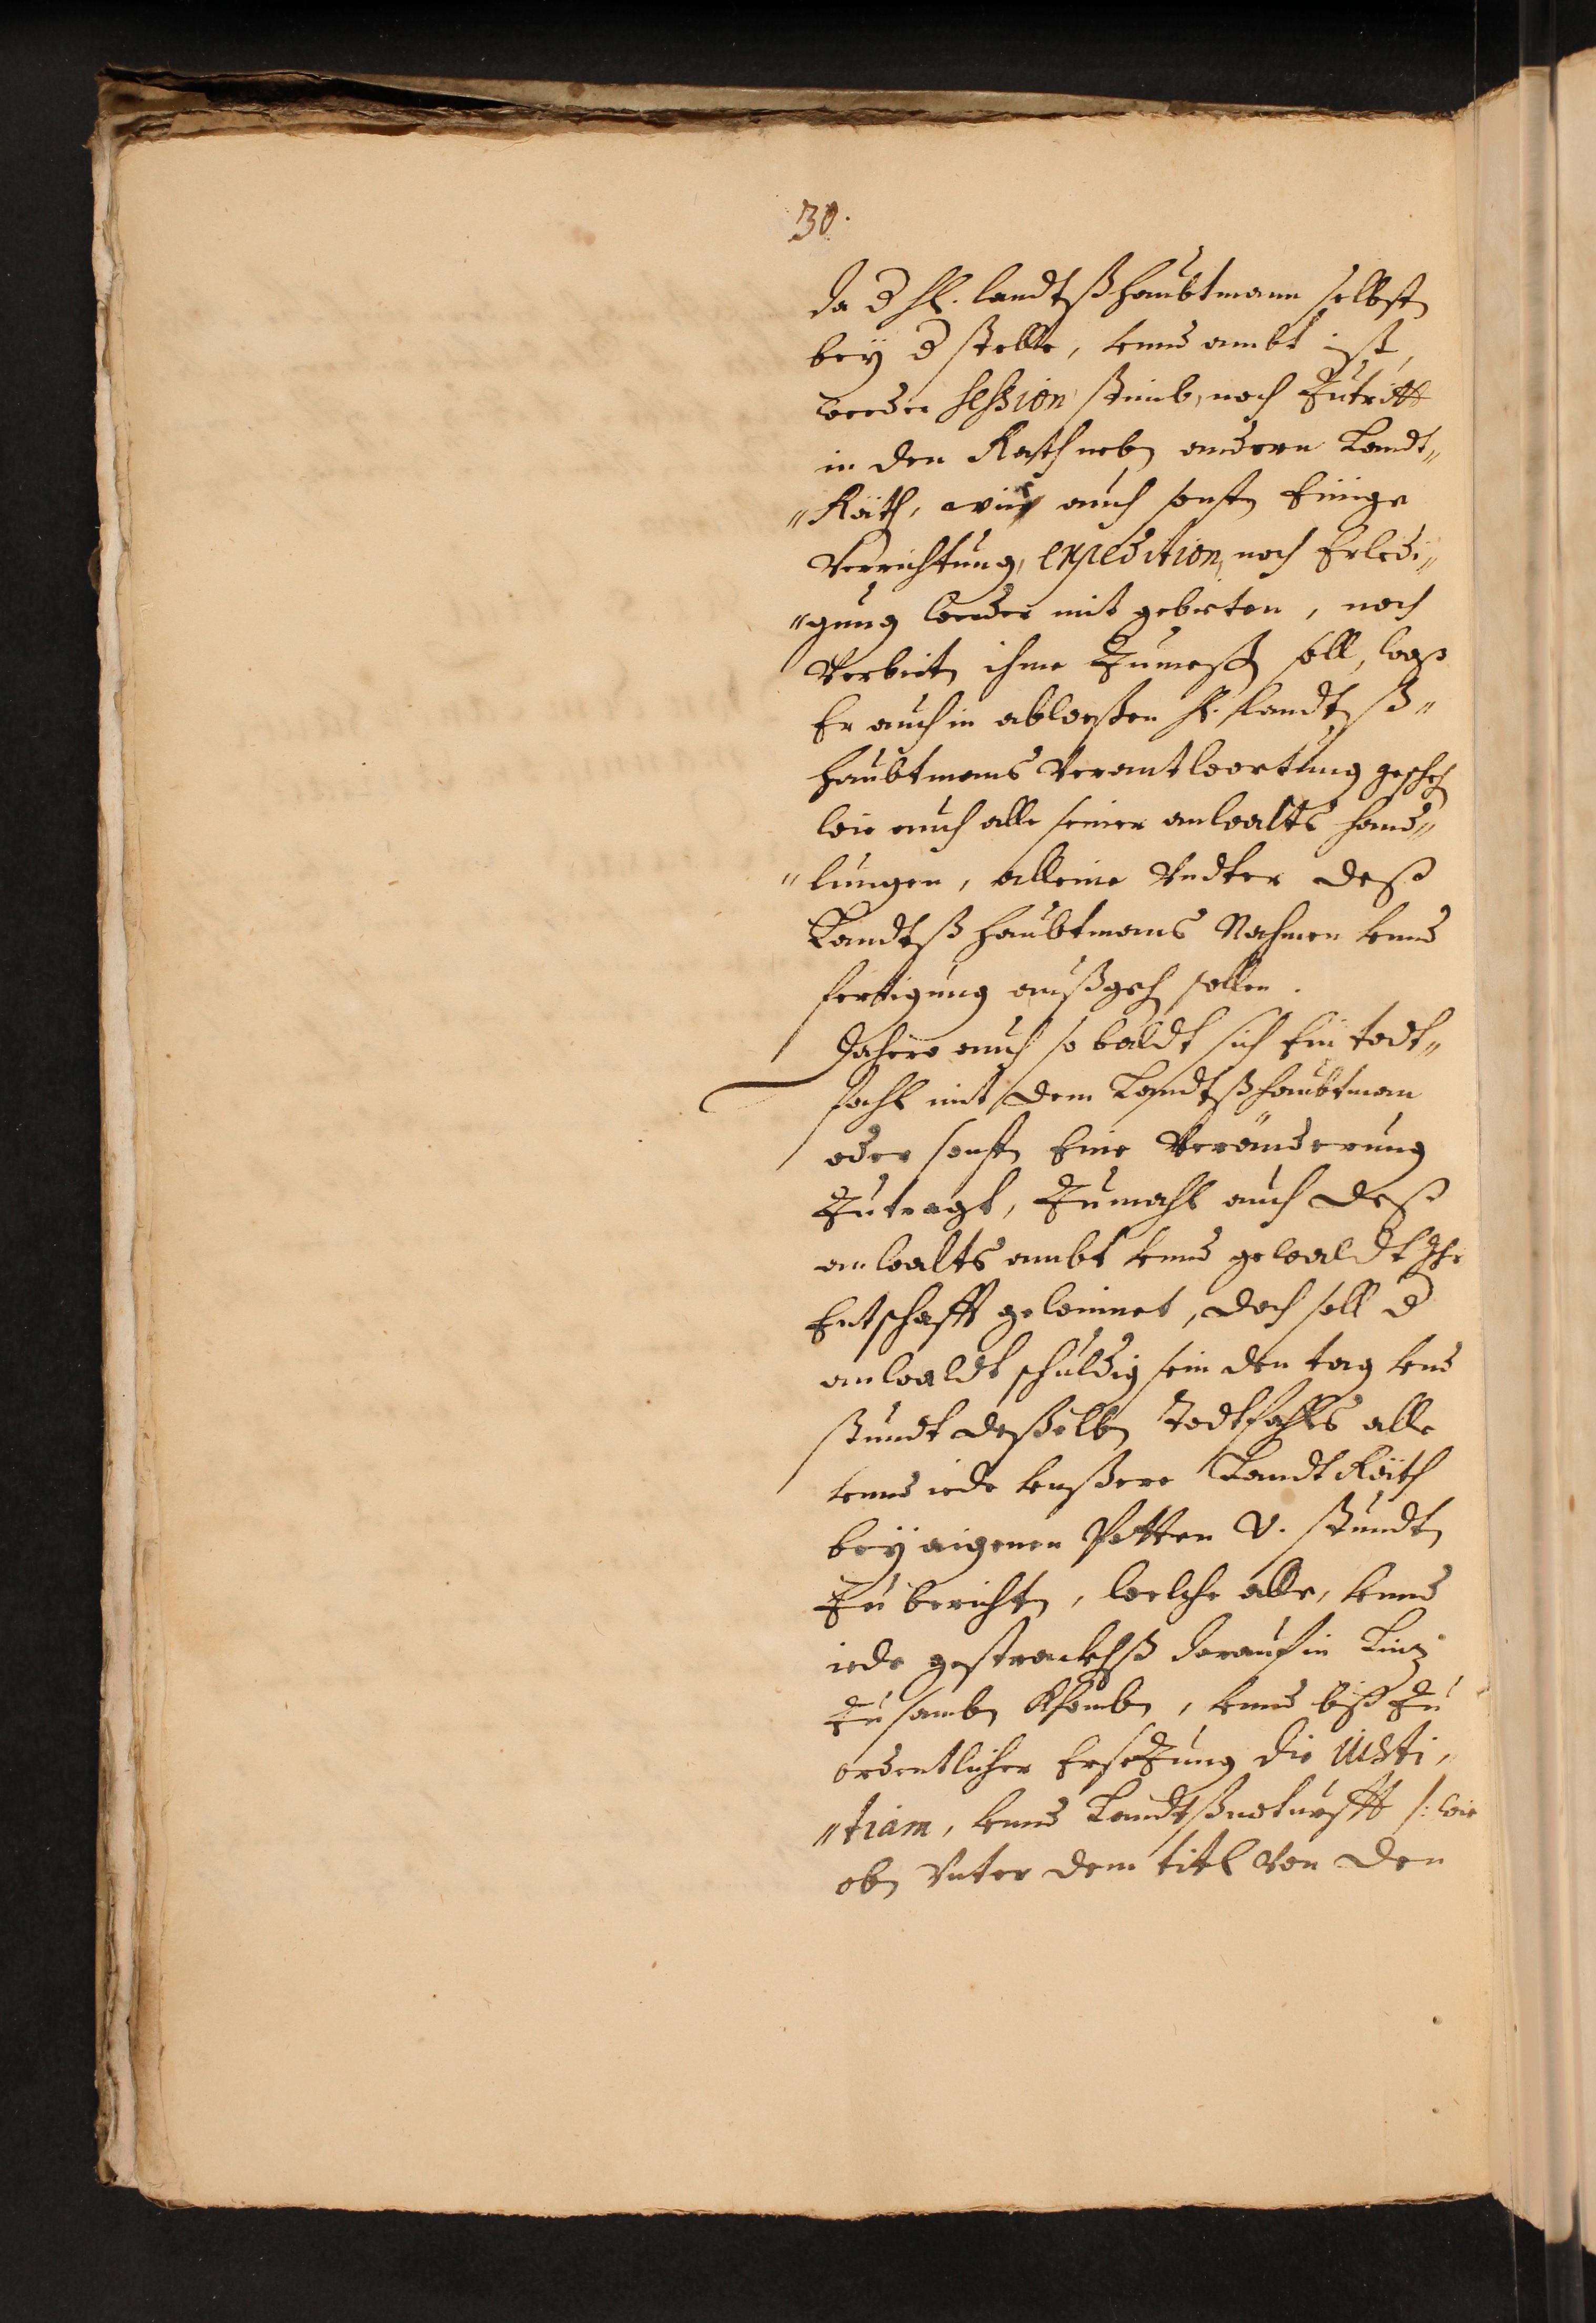 30.
da d H. landtßhaubtmann selbst
bey d stelle, vnnd ambt ist,
weder session stimb, noch Zutritt
in den Rath neben andern Landt„
„Räth, wie auch sonsten Einige
Verrichtung, expedition, noch Erledi„
„gung weder mit gebieten, noch
Verbieten ihme Zumessen soll, waß
Er auch in abweßen H. Landtß„
haubtmans Verantworttung geschehen
wie auch alle seiner anwalts hand„
„lungen, alleine Vndter deß
Landtß haubtmans Nahmen vnnd
fertigung außgehen sollen.
Dahero auch so baldt sich Ein todt„
fahl mit dem Landtßhaubtman
oder sonsten Eine Veränderung
Zutragt, Zumahl auch deß
anwalts ambt vnnd gewaldt Ihr
Entschafft gewinnet, doch soll d
anwaldt schuldig sein den tag vnd
stundt deßelben Todtfahls alle
vnnd iede vnßere Landt Räth
bey aigenen Potten V. stundten
Zu berichten, welche alle, vnnd
iede gestrackhß darauf in Linz
Zusamben Khomben, vnnd biß Zu
ordentlicher Ersezung die iusti„
„tiam, vnnd Landtßnoturfft /: wie
oben Vnter dem titl Von den